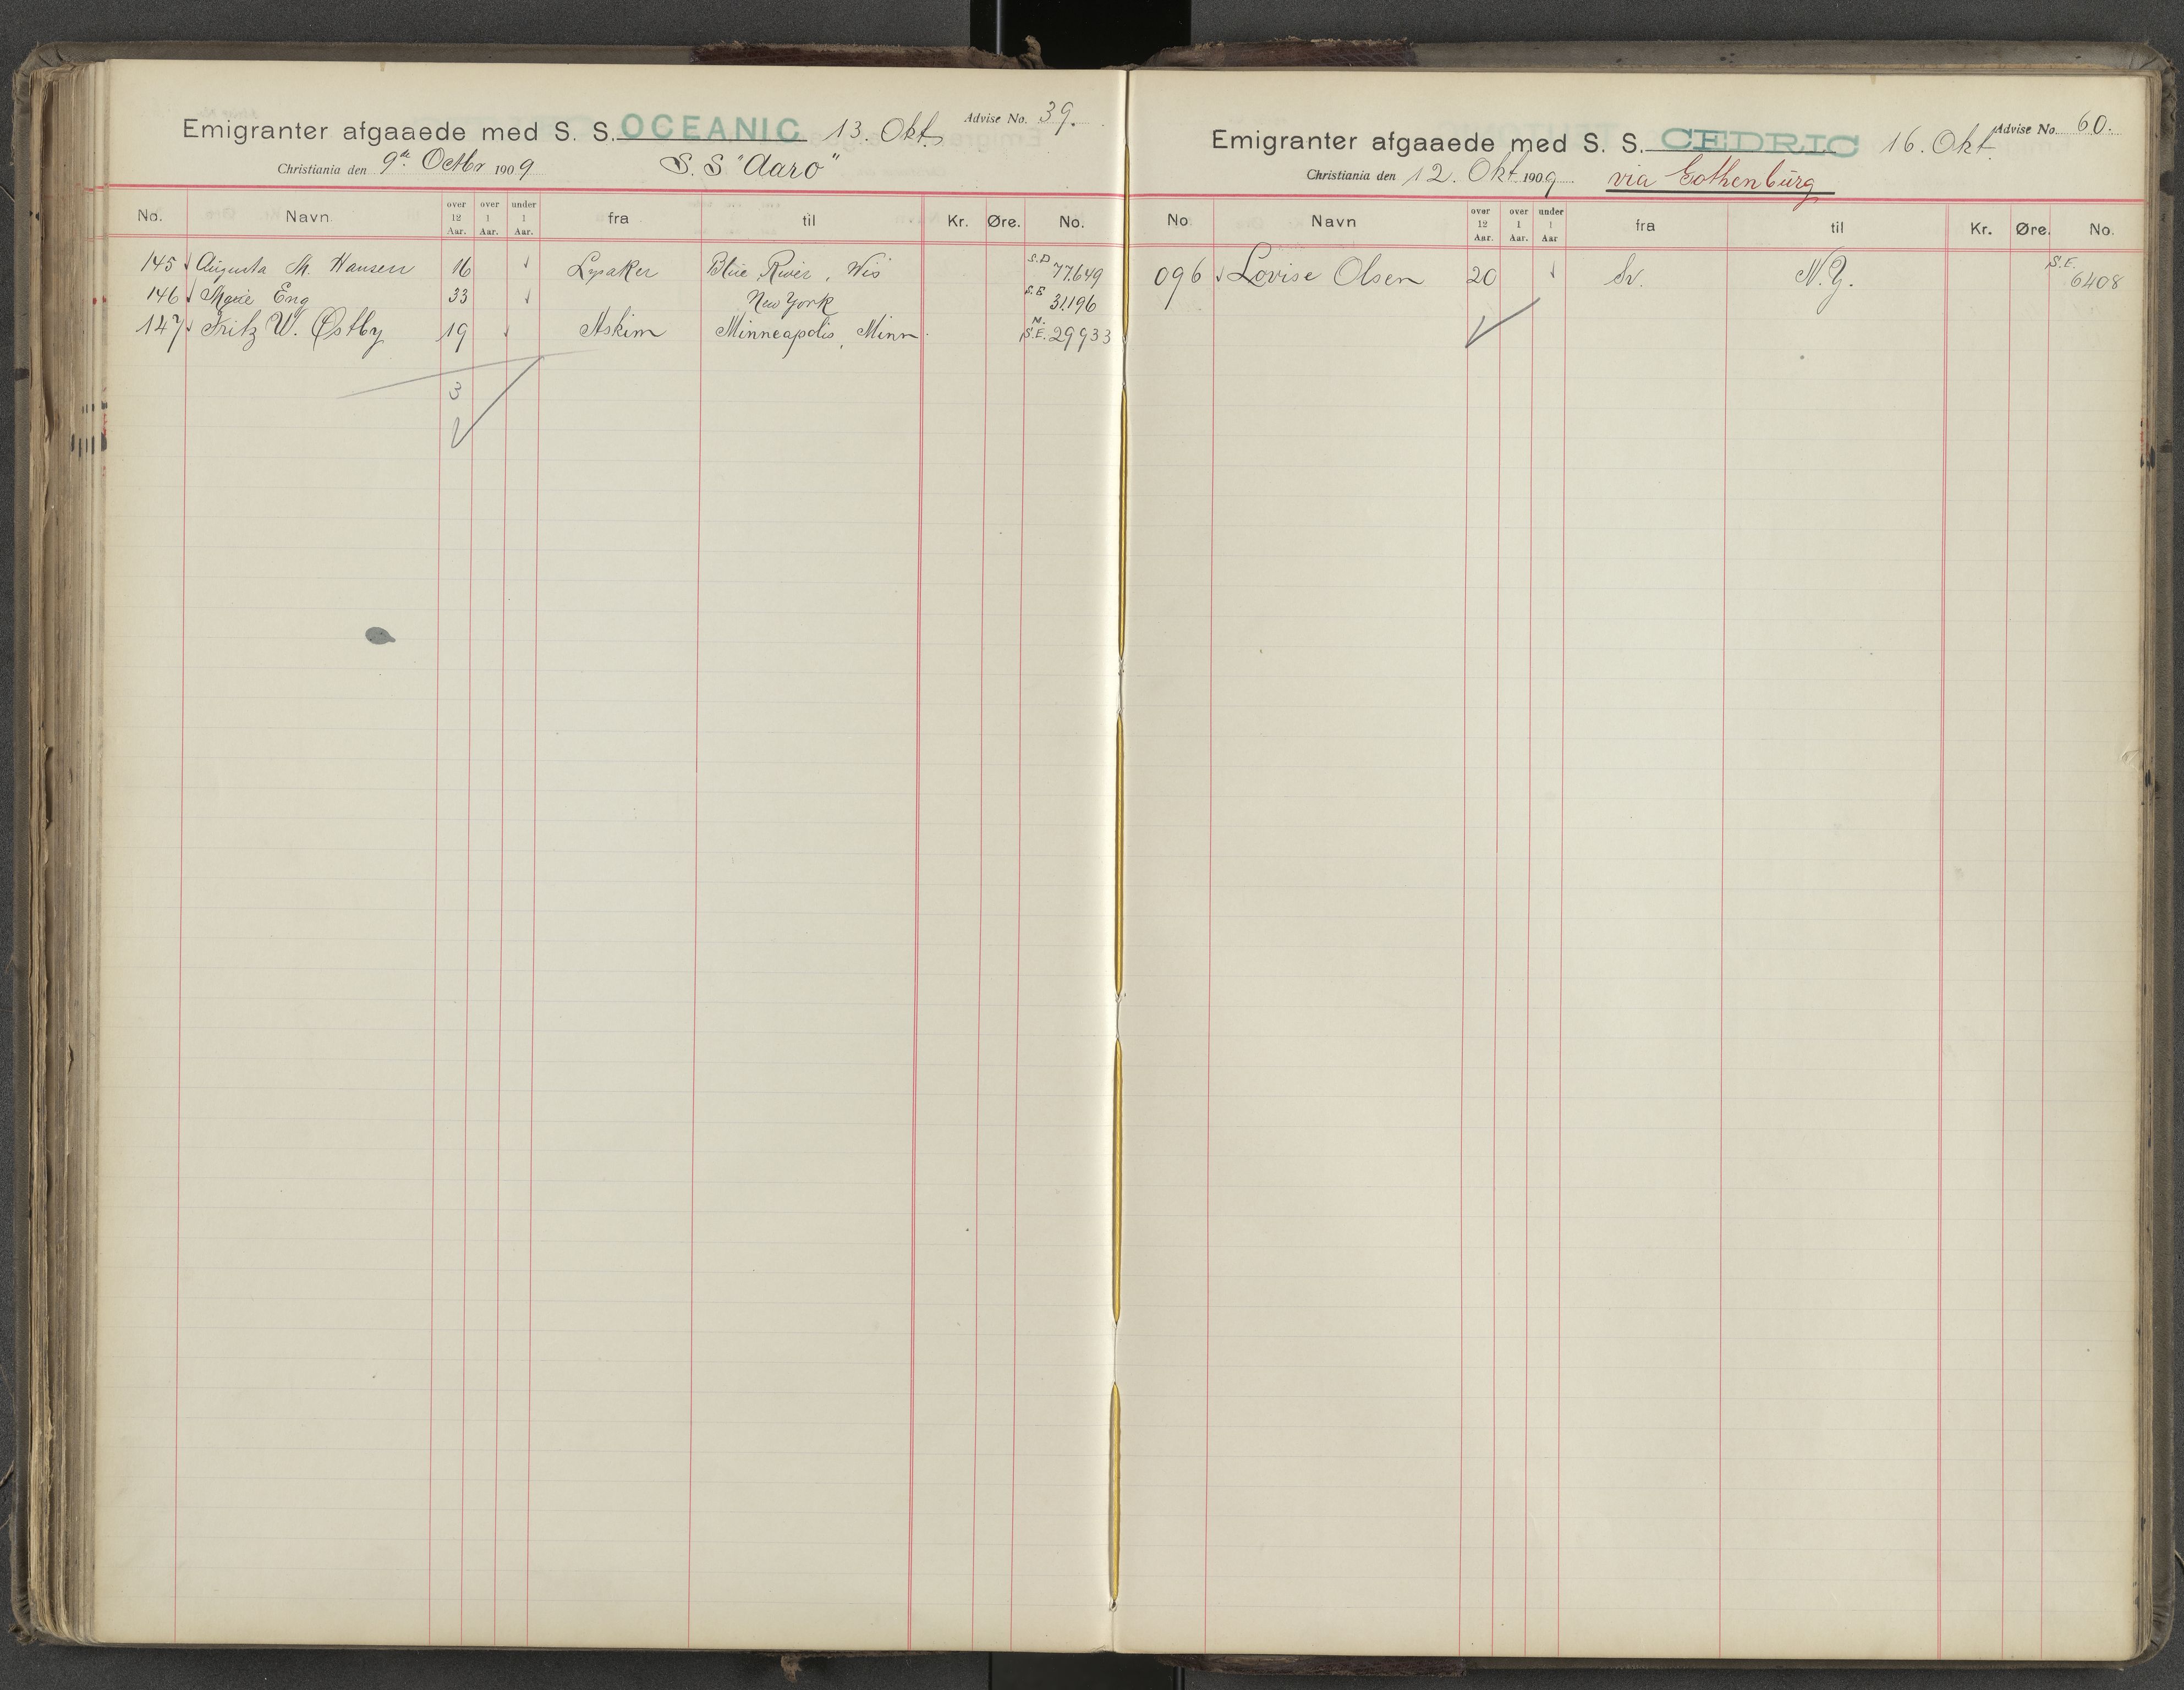 Emigranter afgaaede med S. S. OCEANIC 13. Okt. Advise No. 39.
Christiania den 9de Octbr 1909 S. S "Aaro"
No. Navn over 12 Aar. over 1 Aar. under 1 Aar. fra til Kr. Øre. No.
145 Augusta M. Hansen 16 Lysaker Blue River, Wis S.D 77.649
146 Marie Eng 33 New York S.E 31.196
147 Fritz W. Østby 19 Askim Minneapolis, Minn. N. S.E. 29933
3
Emigranter afgaaede med S. S. CEDRIC 16. Okt. Advise No. 60.
Christiania den 12. Okt. 1909 via Gothenburg
No. Navn over 12 Aar. over 1 Aar. under 1 Aar fra til Kr. Øre. No.
096 Lovise Olsen 20 Sv. N.Y. S.E. 6408